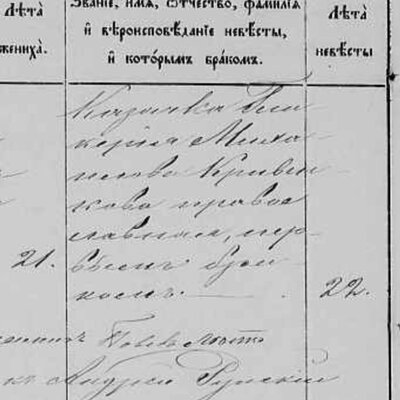 Лѣта
жениха.
Званіе, имя, отчество, фамилія
и вѣроисповѣданіе невѣсты,
и которымъ бракомъ.
Лѣта
невѣсты
Казачка Гли
керія Миха
илова Криви
кова правос
лавная, пер
21.
вымъ бра
комъ.
22.
Андрей